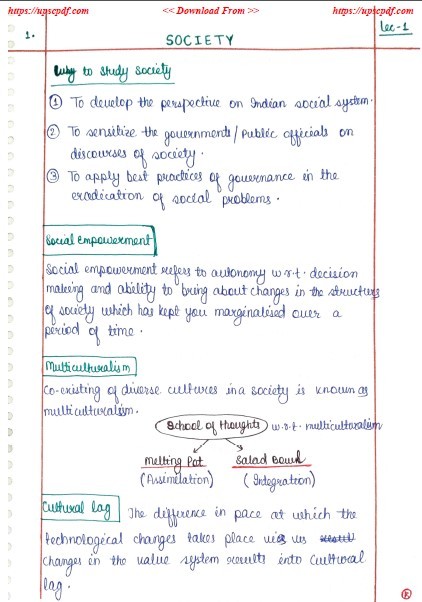 https://upscpdf.com << Download From >> https://upscpdf.com
Lec-1
1.
SOCIETY
Why to study society
① To develop the perspective on Indian social system.
② To sensitize the governments/Public officials on
discourses of society.
③ To apply best practices of governance in the
eradication of social problems.
Social Empowerment
Social empowerment refers to autonomy w.r.t. decision
making and ability to bring about changes in the structure
of society which has kept you marginalised over a
period of time.
Multiculturalism
Co-existing of diverse cultures in a society is known as
multiculturalism.
School of thoughts w.r.t. multiculturalism
Melting Pot Salad Bowl
(Assimilation) (Integration)
Cultural lag The difference in pace at which the
technological changes takes place
changes in the value system results into cultural
lag.
R